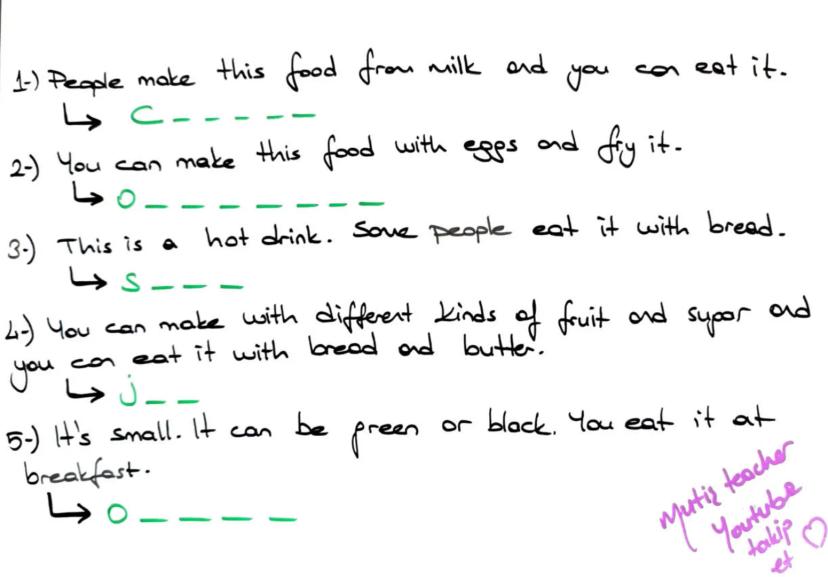 1-) People make this food from milk and you can eat it.
↳ C _ _ _ _ _
2-) You can make this food with eggs and fry it.
↳ O _ _ _ _ _ _ _
3-) This is a hot drink. Some people eat it with bread.
↳ S _ _ _
4-) You can make with different kinds of fruit and sugar and
you can eat it with bread and butter.
↳ j _ _
5-) It's small. It can be green or black. You eat it at
breakfast.
↳ O _ _ _ _
teacher
Youtube
takip
et